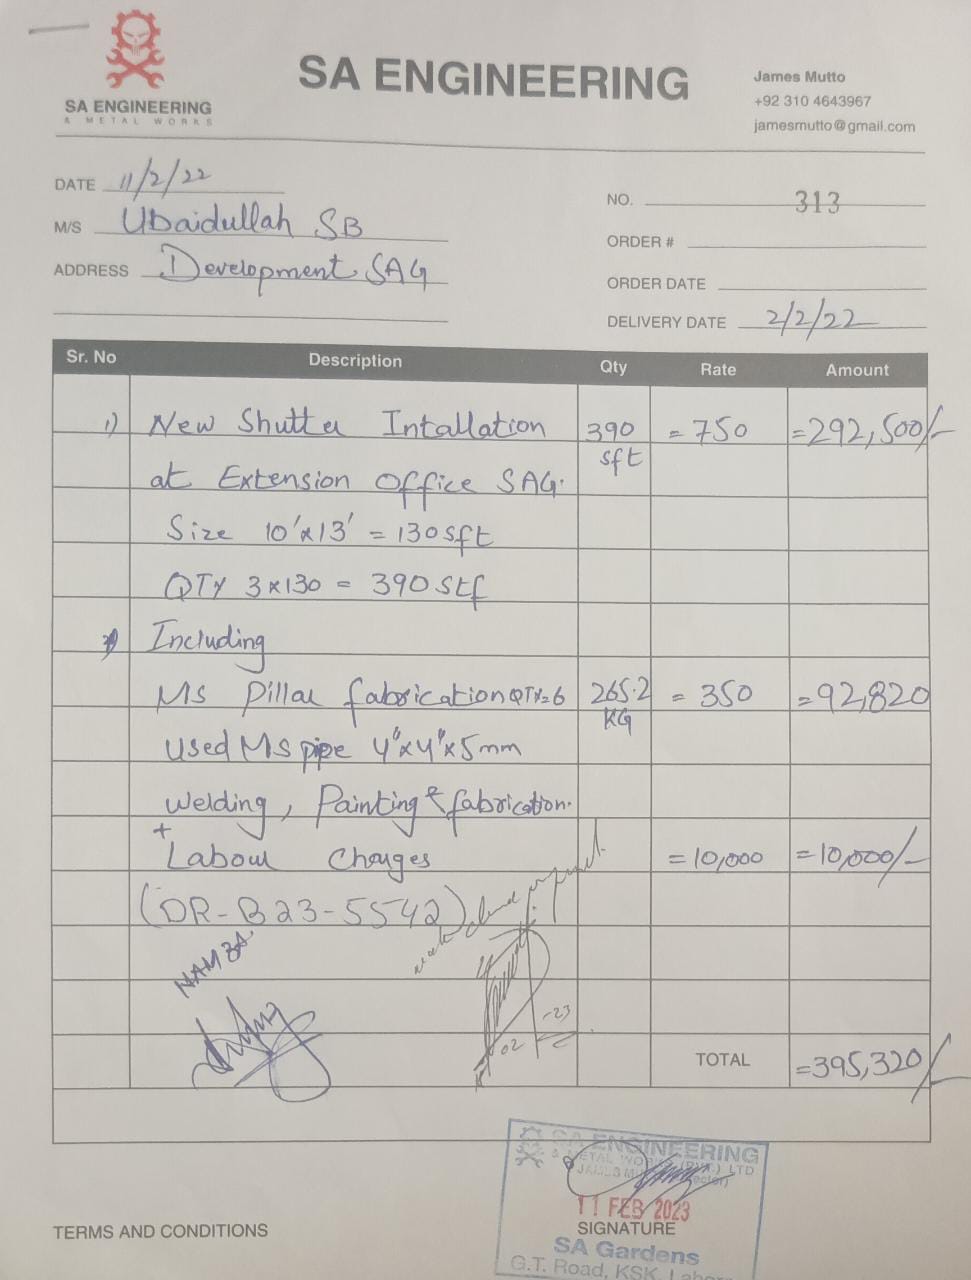 SA ENGINEERING
& METAL WORKS
SA ENGINEERING
James Mutto
+92 310 4643967
jamesmutto@gmail.com
DATE 11/2/22
M/S Ubaidullah SB
ADDRESS Development SAG
NO. 313
ORDER #
ORDER DATE
DELIVERY DATE 2/2/22
Sr. No Description Qty Rate Amount
1) New Shutter Intallation 390 sft =750 =292,500/-
at Extension Office SAG.
Size 10'x13' = 130 sft
QTY 3x130 = 390 stf
Including
Ms Pillar fabrication QTY=6 265.2 KG =350 =92,820
Used MS pipe 4"x4"x5mm
Welding, Painting & fabrication.
+
Labour Charges =10,000 =10,000/-
(DR-B23-5542)
work done
HAMZA
02 -23
TOTAL =395,320/-
SA ENGINEERING
& METAL WORKS (PVT.) LTD
11 FEB 2023
SIGNATURE
SA Gardens
G.T. Road, KSK, Lahore
TERMS AND CONDITIONS